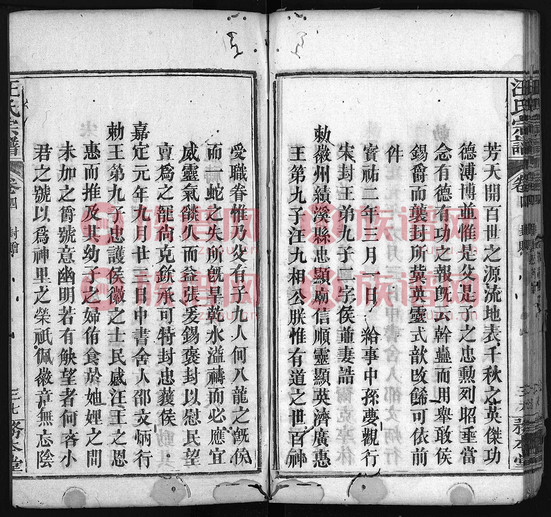 芳天開百世之源流地表千秋之英傑功
德溥博並惟是父是子之忠勲昭垂當
念有德有功之報旣云幹蠱而用舉敢侯
錫爵而襃封所兾英靈式歆改餙可依前
件
寳祐二年三月一日 給事中孫夢觀行
宋封王第九子二字侯誥妻誥
勅徽州績溪縣忠顯廟信順靈顯英濟廣惠
王第九子注九相公朕惟有道之世百神
受職眷惟乃父有子九人何八龍之旣侯
而一蛇之失所旣旱乾水溢禱而必應宜
威靈氣燄久而益張爰錫褒封以慰民望
亶爲之寵尚克欽承可特封忠襄侯
嘉定元年九月廿三日中書舍人邵文炳行
勅王第九子忠護侯徽之士民感汪王之恩
惠而推及其幼子之婦侑食於她娌之間
未加之爵號意幽明若有缺望者何吝小
君之號以爲神里之榮祇佩徽章無忘陰
汪氏宗譜
卷四
封贈
三七
務本堂
汪氏宗譜
卷四
務本堂
族譜网